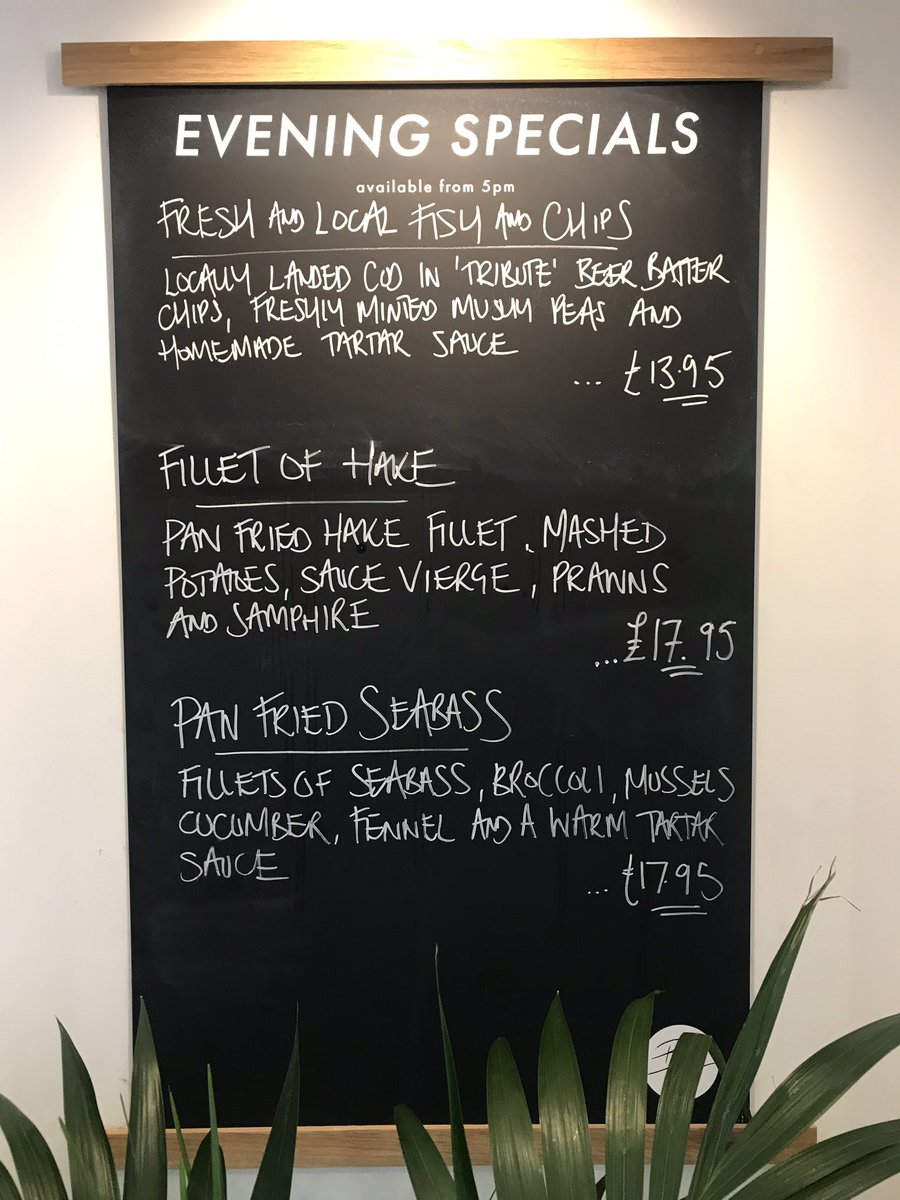 EVENING SPECIALS
available from 5pm
FRESH AND LOCAL FISH AND CHIPS
LOCALLY LANDED COD IN 'TRIBUTE' BEER BATTER
CHIPS, FRESHLY MINTED MUSHY PEAS AND
HOMEMADE TARTAR SAUCE
... £13.95
FILLET OF HAKE
PAN FRIED HAKE FILLET, MASHED
POTATOES, SAUCE VIERGE, PRAWNS
AND SAMPHIRE
...£17.95
PAN FRIED SEABASS
FILLETS OF SEABASS, BROCCOLI, MUSSELS
CUCUMBER, FENNEL AND A WARM TARTAR
SAUCE
... £17.95